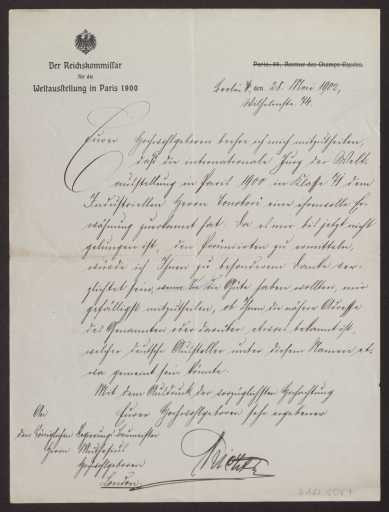 Der Reichskommissar
für die
Weltausstellung in Paris 1900
Paris, 88, Avenue des Champs Elysées.
Berlin W. den 28. Mai 1902,
Wilhelmstr. 74.
Euer Hochwohlgeboren beehre ich mich mitzutheilen,
daß die internationale Jury der Welt-
ausstellung in Paris 1900 in Klasse 71 dem
Industriellen Herrn eine ehrenvolle Er-
wähnung zuerkannt hat. Da es mir bis jetzt nicht
gelungen ist, den Prämiirten zu ermitteln,
würde ich Ihnen zu besonderem Danke ver-
pflichtet sein, wenn Sie die Güte haben wollten, mir
gefälligst mitzutheilen, ob Ihnen die nähere Adresse
des Genannten oder darüber etwas bekannt ist,
welcher deutsche Aussteller unter diesem Namen et-
wa gemeint sein könnte.
Mit dem Ausdruck der vorzüglichsten Hochachtung
Euerer Hochwohlgeboren sehr ergebener
An
den Königlichen Regierungs-Baumeister
Herrn Muthesius
Hochwohlgeboren
London.
Richter